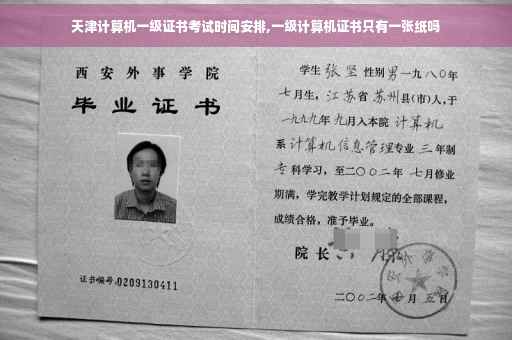 天津计算机一级证书考试时间安排,一级计算机证书只有一张纸吗
西安外事学院
毕业证书
证书编号:0209130411
学生 张坚 性别 男 一九八〇年
七月生, 江苏省 苏州县(市)人,于
一九九九年 九月入本院 计算机
系 计算机信息管理专业 三 年制
专科学习, 至二〇〇二年 七月修业
期满, 学完教学计划规定的全部课程,
成绩合格, 准予毕业。
院长
二〇〇二年 月 五日